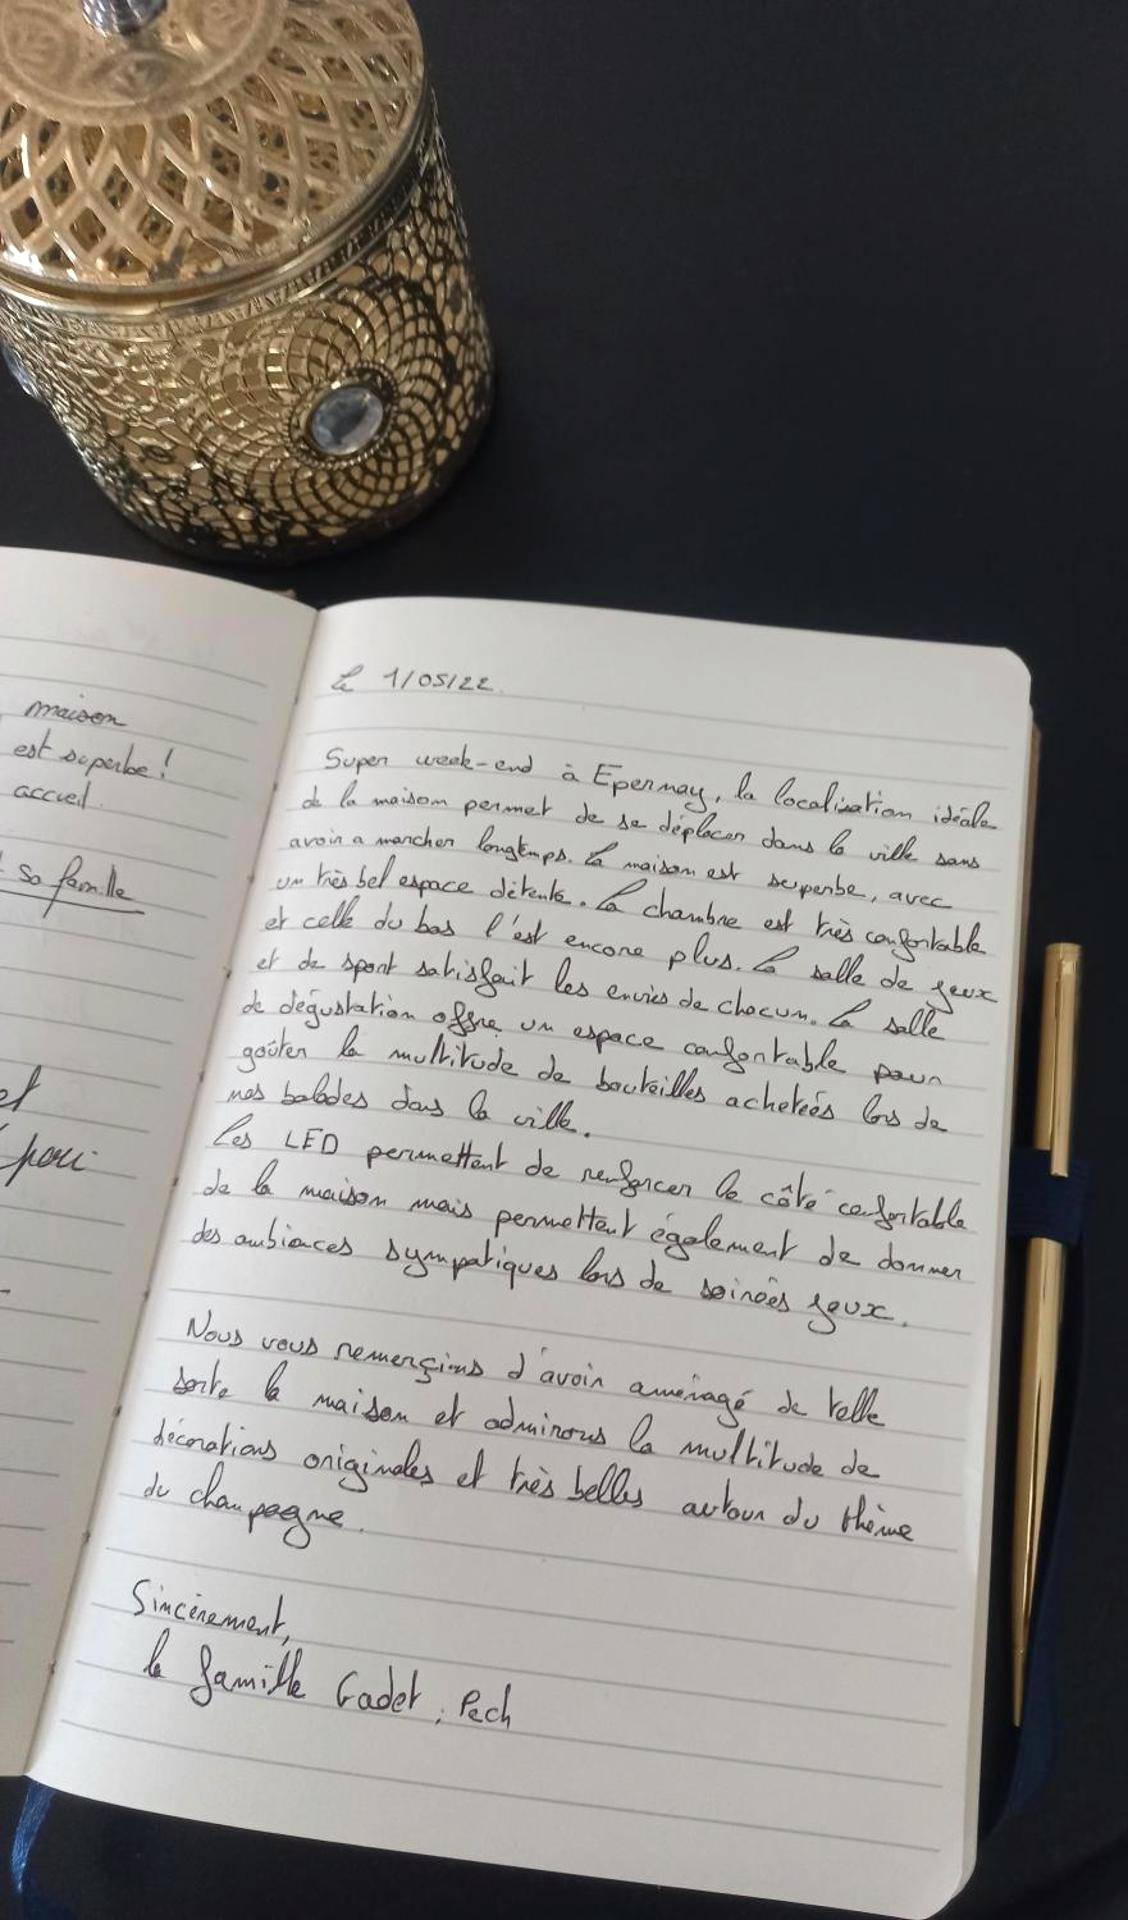 maison
est superbe !
accueil.
sa famille
et
pour
Le 1/05/22.
Super week-end à Epernay, la localisation idéale
de la maison permet de se déplacer dans la ville sans
avoir a marcher longtemps. La maison est superbe, avec
un très bel espace détente. La chambre est très confortable
et celle du bas l'est encore plus. La salle de jeux
et de sport satisfait les envies de chacun. La salle
de dégustation offre un espace confortable pour
goûter la multitude de bouteilles achetées lors de
nos balades dans la ville.
Les LED permettent de renforcer le côté confortable
de la maison mais permettent également de donner
des ambiances sympatiques lors de soirées jeux.
Nous vous remerçions d'avoir aménagé de telle
sorte la maison et admirons la multitude de
décorations originales et très belles autour du thème
du champagne.
Sincèrement,
la famille Cadet, Pech